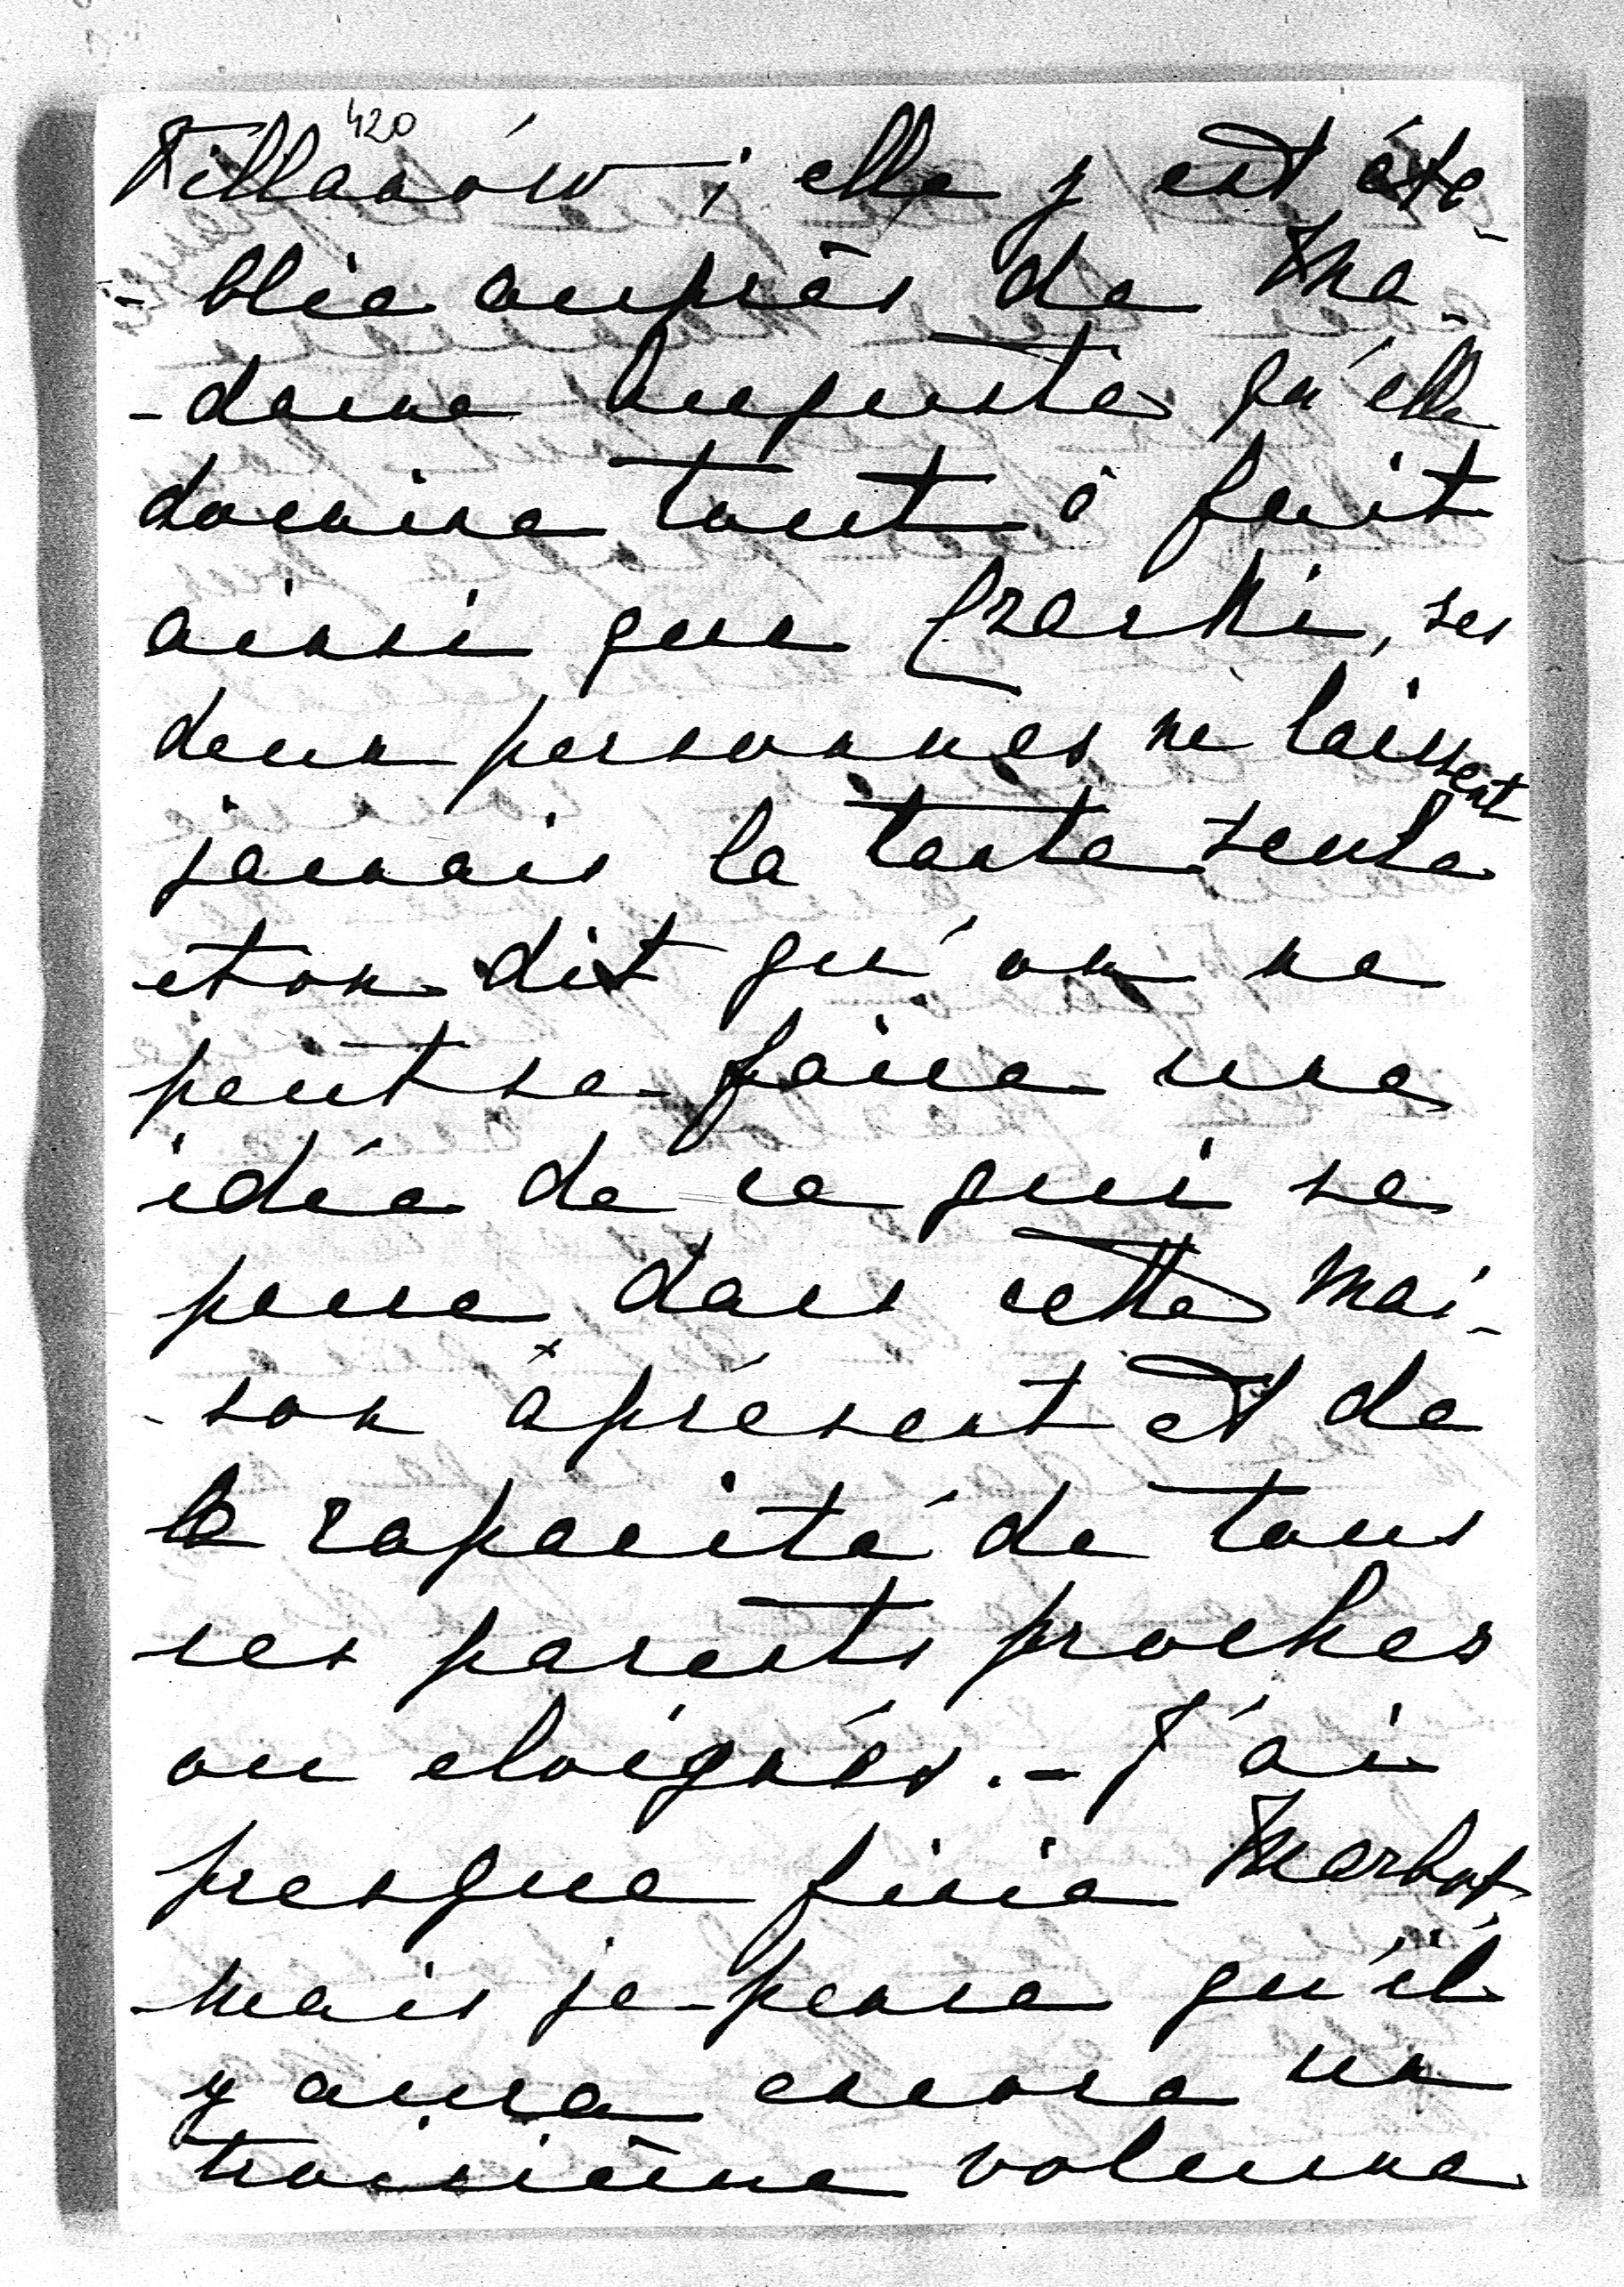 420
Villanów ; elle y est éta-
-blie auprès de Ma-
-dame Auguste qu'elle
domine tout à fait
ainsi que Czacki, ses
deux personnes ne laissent
jamais la tante seule
et on dit qu'on ne
peut se faire une
idée de ce qui se
passe dans cette mai-
-son àprésent et de
la rapacité de tous
ces parents proches
ou eloignés. - J'ai
presque finie Marbot,
mais je pense qu'il
y aura encore un
troisième volume